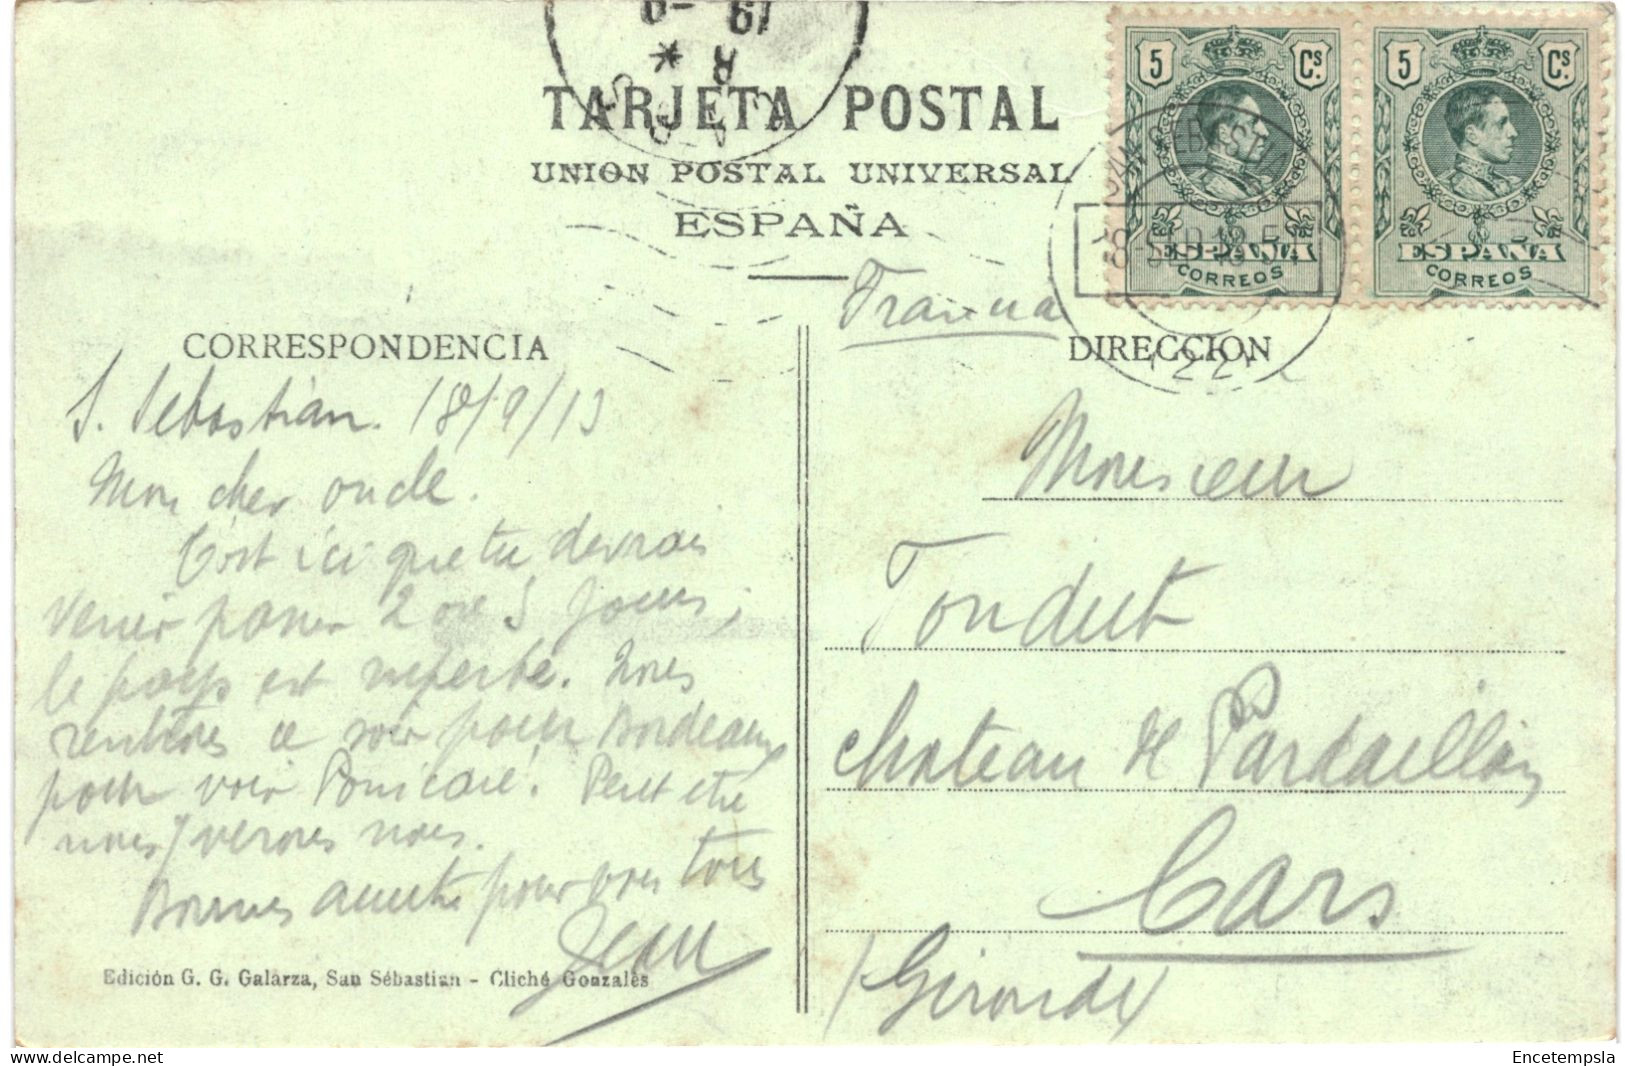 TARJETA POSTAL
UNION POSTAL UNIVERSAL
ESPAÑA
5 Cs. 5 Cs.
ESPAÑA ESPAÑA
CORREOS CORREOS
CORRESPONDENCIA
S. Sebastian. 18/9/13
Mon cher oncle.
C'est ici que tu devrais
venir passer 2 ou 3 jours,
le pays est superbe. Nous
rentrons ce soir pour Bordeaux
pour voir Poincaré! Peut etre
nous y verrons nous.
Bonnes amitiés pour vous tous
Jean
Edición G. G. Galarza, San Sébastian - Cliché Gonzalès
Francia
DIRECCION
Monsieur
Tondut
chateau de Pardaillan
Cars
(Gironde)
Encetempsla.com
Encetempsla